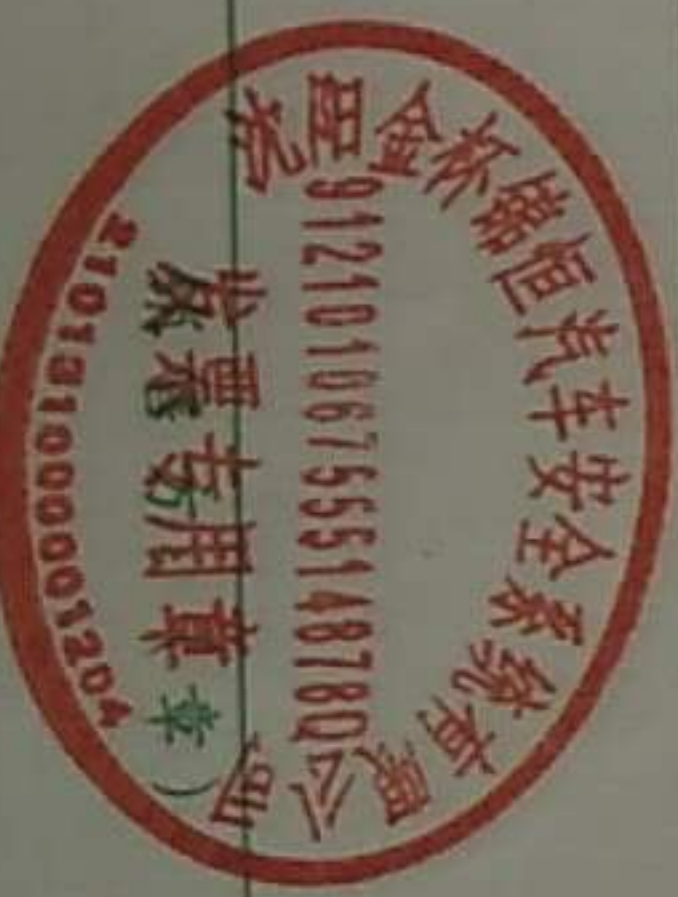 沈阳金杯锦恒汽车安全系统有限公司
91210106755514878Q
发票专用章
章)
210131000001204